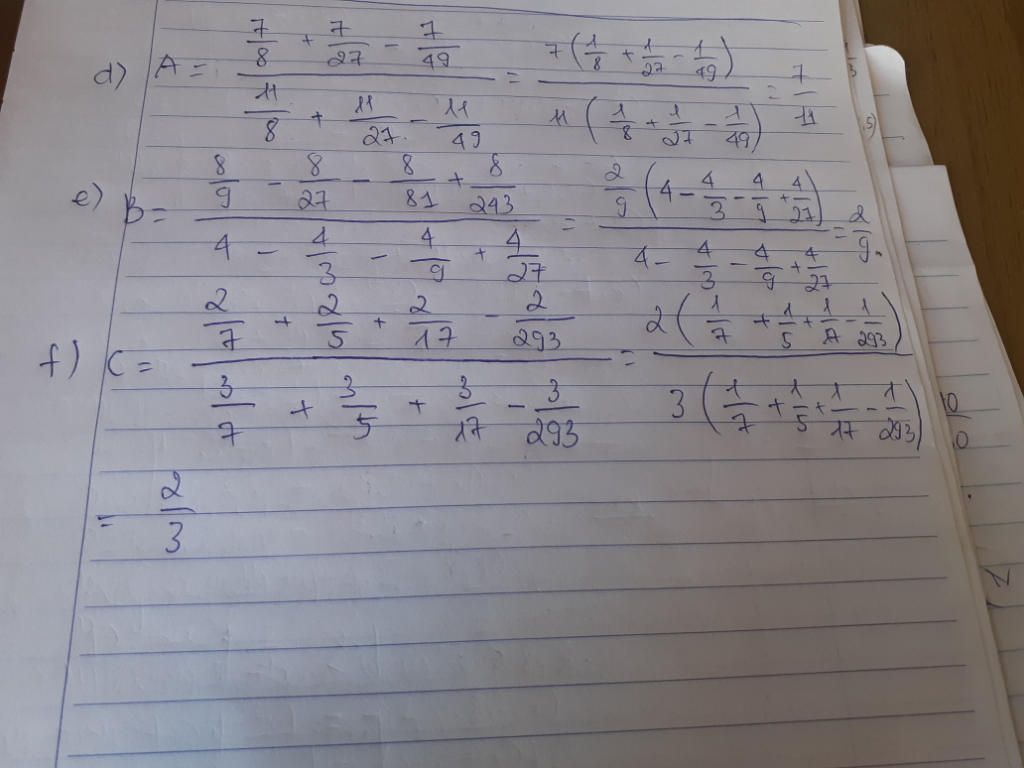 d) A = (7/8 + 7/27 - 7/49) / (11/8 + 11/27 - 11/49) = 7(1/8 + 1/27 - 1/49) / 11(1/8 + 1/27 - 1/49) = 7/11
e) B = (8/9 - 8/27 - 8/81 + 8/243) / (4 - 4/3 - 4/9 + 4/27) = 2/9(4 - 4/3 - 4/9 + 4/27) / (4 - 4/3 - 4/9 + 4/27) = 2/9.
f) C = (2/7 + 2/5 + 2/17 - 2/293) / (3/7 + 3/5 + 3/17 - 3/293) = 2(1/7 + 1/5 + 1/17 - 1/293) / 3(1/7 + 1/5 + 1/17 - 1/293)
= 2/3